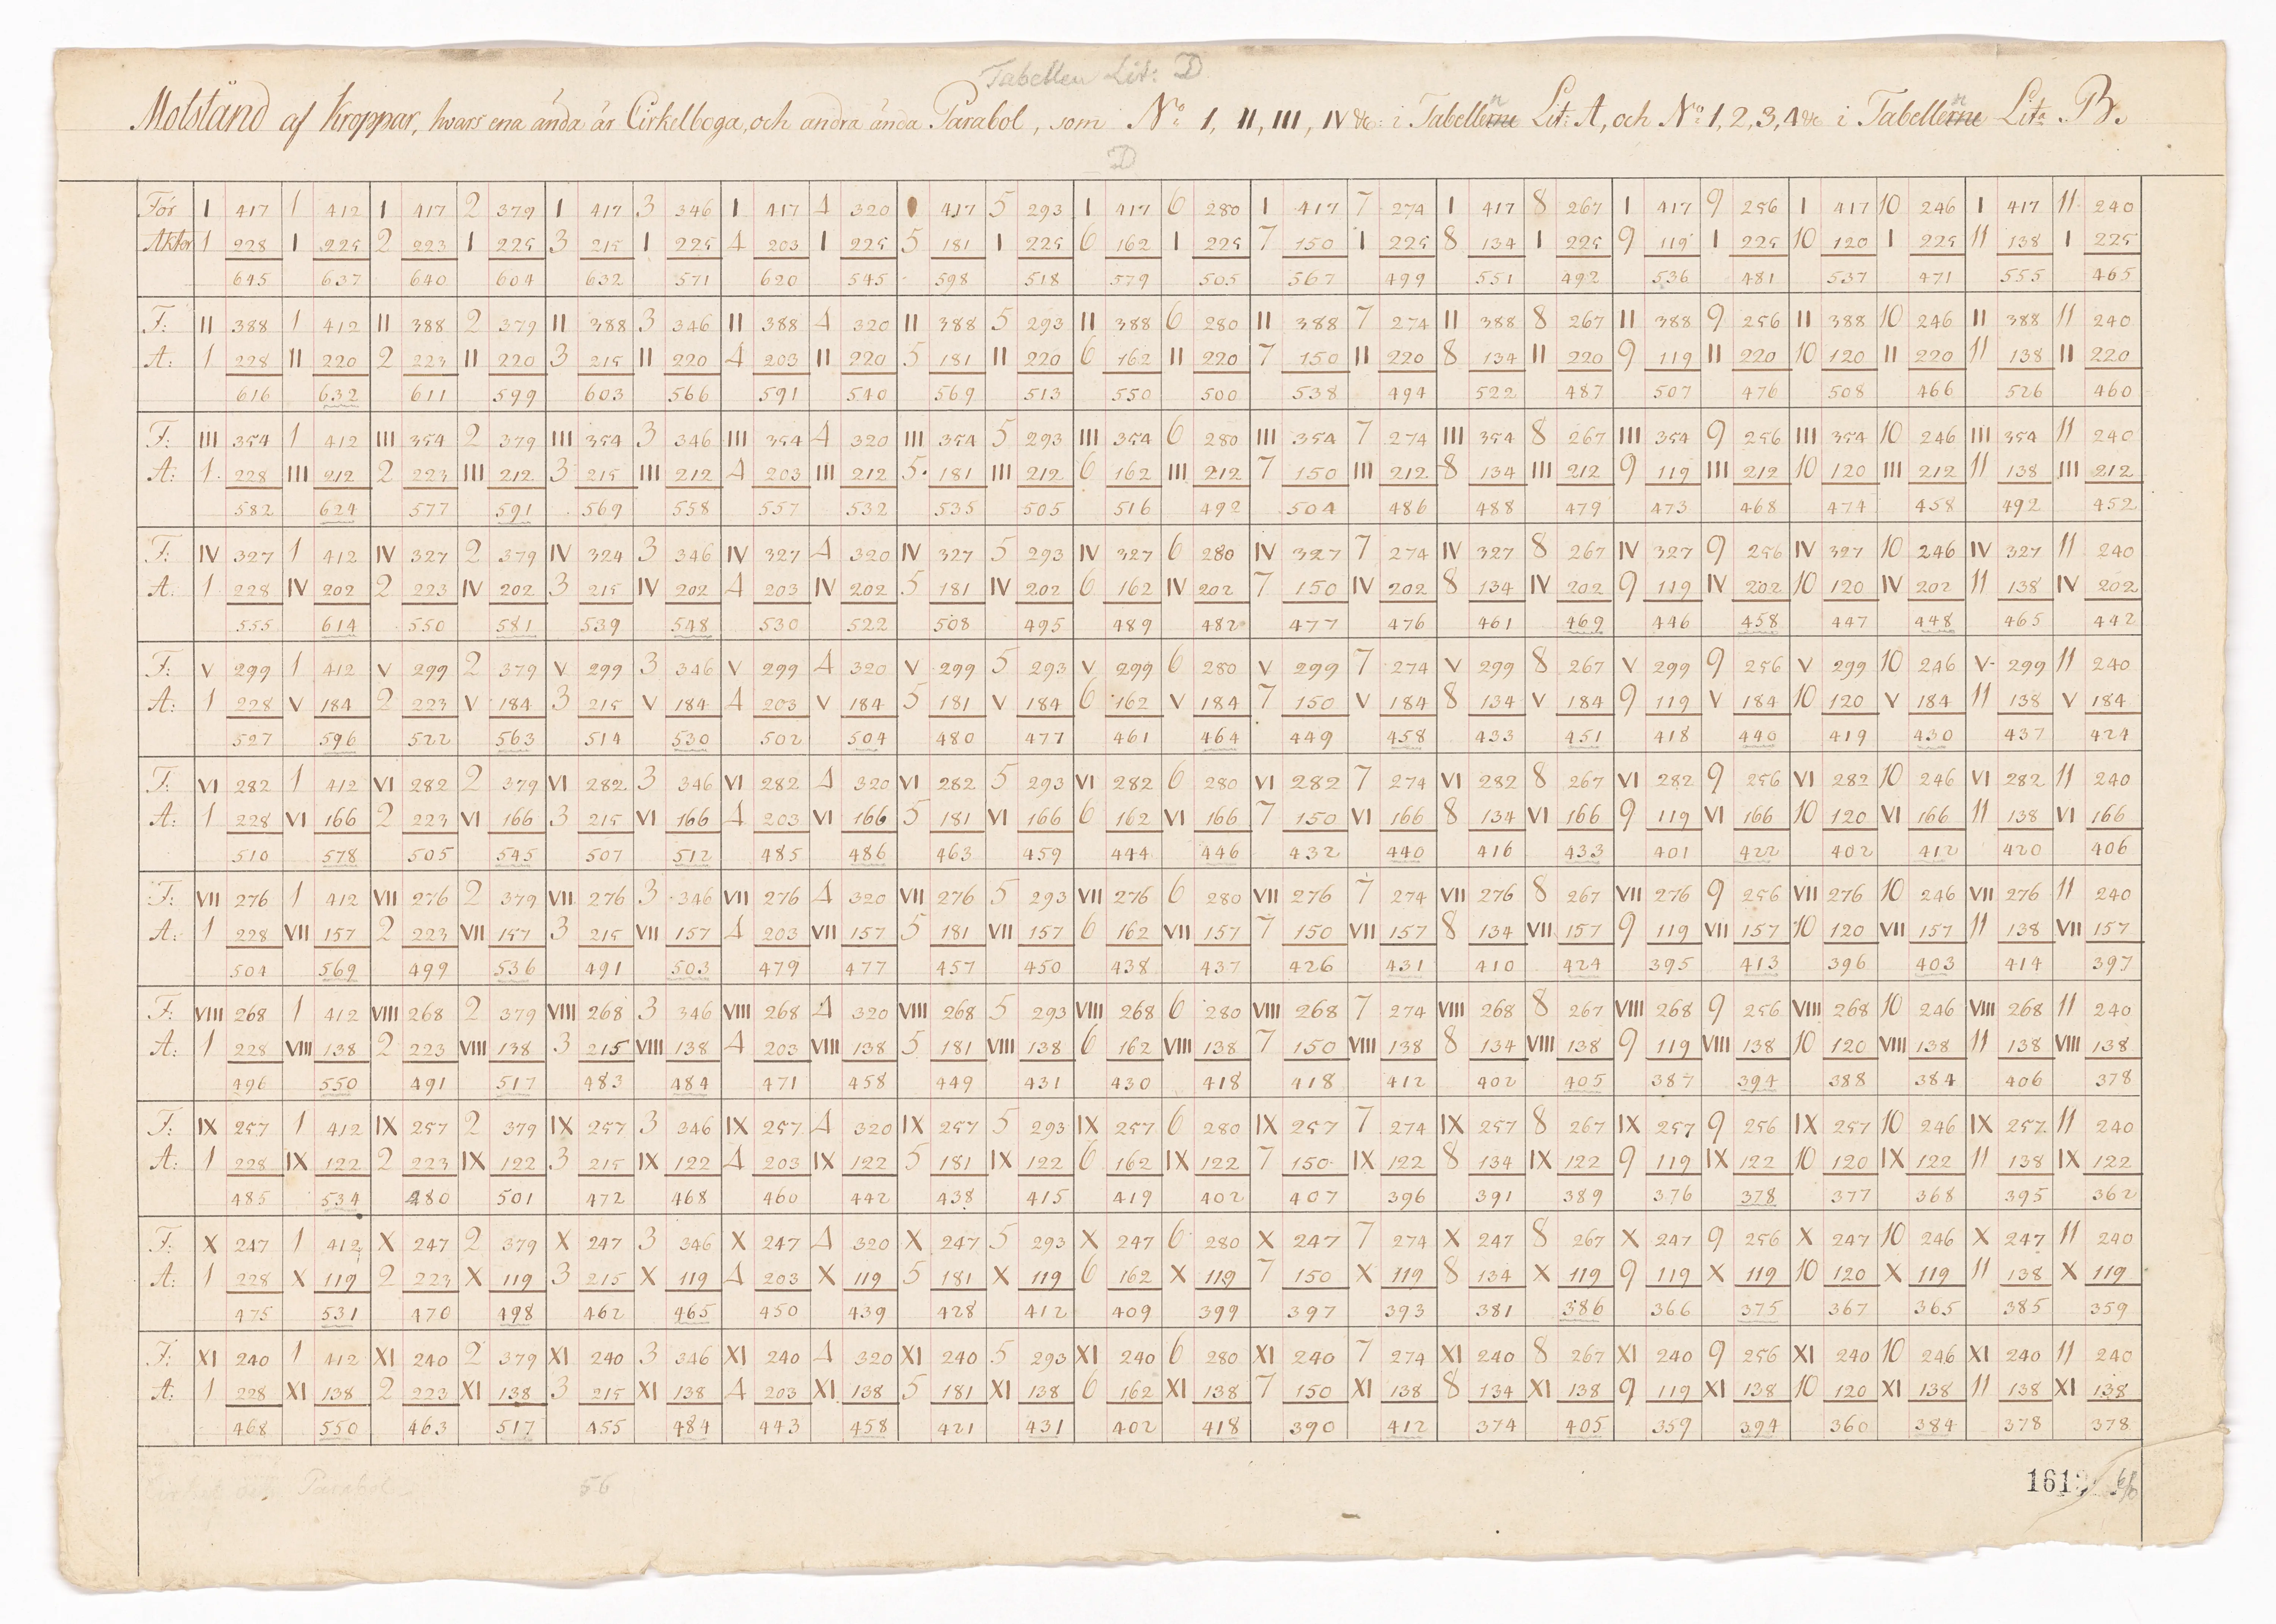 Tabellen Lit: D
Motstånd af Kroppar, hvars ena ända är Cirkelboga, och andra ända Parabol, som No 1, II, III, IV &c: i Tabellerne Lit: A, och No 1, 2, 3, 4 &c i Tabellerne Lita B.
D
För I 417 1 412 I 417 2 379 I 417 3 346 I 417 4 320 417 5 293 I 417 6 280 I 417 7 274 I 417 8 267 I 417 9 256 I 417 10 246 I 417 11 240
Akter 1 228 I 225 2 223 I 225 3 215 I 225 4 203 I 225 5 181 I 225 6 162 I 225 7 150 I 225 8 134 I 225 9 119 I 225 10 120 I 225 11 138 I 225
645 637 640 604 632 571 620 545 598 518 579 505 567 499 551 492 536 481 537 471 555 465
F: II 388 1 412 II 388 2 379 II 388 3 346 II 388 4 320 II 388 5 293 II 388 6 280 II 388 7 274 II 388 8 267 II 388 9 256 II 388 10 246 II 388 11 240
A: 1 228 II 220 2 223 II 220 3 215 II 220 4 203 II 220 5 181 II 220 6 162 II 220 7 150 II 220 8 134 II 220 9 119 II 220 10 120 II 220 11 138 II 220
616 632 611 599 603 566 591 540 569 513 550 500 538 494 522 487 507 476 508 466 526 460
F: III 354 1 412 III 354 2 379 III 354 3 346 III 354 4 320 III 354 5 293 III 354 6 280 III 354 7 274 III 354 8 267 III 354 9 256 III 354 10 246 III 354 11 240
A: 1 228 III 212 2 223 III 212 3 215 III 212 4 203 III 212 5 181 III 212 6 162 III 212 7 150 III 212 8 134 III 212 9 119 III 212 10 120 III 212 11 138 III 212
582 624 577 591 569 558 557 532 535 505 516 492 504 486 488 479 473 468 474 458 492 452
F: IV 327 1 412 IV 327 2 379 IV 324 3 346 IV 327 4 320 IV 327 5 293 IV 327 6 280 IV 327 7 274 IV 327 8 267 IV 327 9 256 IV 327 10 246 IV 327 11 240
A: 1 228 IV 202 2 223 IV 202 3 215 IV 202 4 203 IV 202 5 181 IV 202 6 162 IV 202 7 150 IV 202 8 134 IV 202 9 119 IV 202 10 120 IV 202 11 138 IV 202
555 614 550 581 539 548 530 522 508 495 489 482 477 476 461 469 446 458 447 448 465 442
F: V 299 1 412 V 299 2 379 V 299 3 346 V 299 4 320 V 299 5 293 V 299 6 280 V 299 7 274 V 299 8 267 V 299 9 256 V 299 10 246 V 299 11 240
A: 1 228 V 184 2 223 V 184 3 215 V 184 4 203 V 184 5 181 V 184 6 162 V 184 7 150 V 184 8 134 V 184 9 119 V 184 10 120 V 184 11 138 V 184
527 596 522 563 514 530 502 504 480 477 461 464 449 458 433 451 418 440 419 430 437 424
F: VI 282 1 412 VI 282 2 379 VI 282 3 346 VI 282 4 320 VI 282 5 293 VI 282 6 280 VI 282 7 274 VI 282 8 267 VI 282 9 256 VI 282 10 246 VI 282 11 240
A: 1 228 VI 166 2 223 VI 166 3 215 VI 166 4 203 VI 166 5 181 VI 166 6 162 VI 166 7 150 VI 166 8 134 VI 166 9 119 VI 166 10 120 VI 166 11 138 VI 166
510 578 505 545 507 512 485 486 463 459 444 446 432 440 416 433 401 422 402 412 420 406
F: VII 276 1 412 VII 276 2 379 VII 276 3 346 VII 276 4 320 VII 276 5 293 VII 276 6 280 VII 276 7 274 VII 276 8 267 VII 276 9 256 VII 276 10 246 VII 276 11 240
A: 1 228 VII 157 2 223 VII 157 3 215 VII 157 4 203 VII 157 5 181 VII 157 6 162 VII 157 7 150 VII 157 8 134 VII 157 9 119 VII 157 10 120 VII 157 11 138 VII 157
504 569 499 536 491 503 479 477 457 450 438 437 426 431 410 424 395 413 396 403 414 397
F: VIII 268 1 412 VIII 268 2 379 VIII 268 3 346 VIII 268 4 320 VIII 268 5 293 VIII 268 6 280 VIII 268 7 274 VIII 268 8 267 VIII 268 9 256 VIII 268 10 246 VIII 268 11 240
A: 1 228 VIII 138 2 223 VIII 138 3 215 VIII 138 4 203 VIII 138 5 181 VIII 138 6 162 VIII 138 7 150 VIII 138 8 134 VIII 138 9 119 VIII 138 10 120 VIII 138 11 138 VIII 138
496 550 491 517 483 484 471 458 449 431 430 418 418 412 402 405 387 394 388 384 406 378
F: IX 257 1 412 IX 257 2 379 IX 257 3 346 IX 257 4 320 IX 257 5 293 IX 257 6 280 IX 257 7 274 IX 257 8 267 IX 257 9 256 IX 257 10 246 IX 257 11 240
A: 1 228 IX 122 2 223 IX 122 3 215 IX 122 4 203 IX 122 5 181 IX 122 6 162 IX 122 7 150 IX 122 8 134 IX 122 9 119 IX 122 10 120 IX 122 11 138 IX 122
485 534 480 501 472 468 460 442 438 415 419 402 407 396 391 389 376 378 377 368 395 362
F: X 247 1 412 X 247 2 379 X 247 3 346 X 247 4 320 X 247 5 293 X 247 6 280 X 247 7 274 X 247 8 267 X 247 9 256 X 247 10 246 X 247 11 240
A: 1 228 X 119 2 223 X 119 3 215 X 119 4 203 X 119 5 181 X 119 6 162 X 119 7 150 X 119 8 134 X 119 9 119 X 119 10 120 X 119 11 138 X 119
475 531 470 498 462 465 450 439 428 412 409 399 397 393 381 386 366 375 367 365 385 359
F: XI 240 1 412 XI 240 2 379 XI 240 3 346 XI 240 4 320 XI 240 5 293 XI 240 6 280 XI 240 7 274 XI 240 8 267 XI 240 9 256 XI 240 10 246 XI 240 11 240
A: 1 228 XI 138 2 223 XI 138 3 215 XI 138 4 203 XI 138 5 181 XI 138 6 162 XI 138 7 150 XI 138 8 134 XI 138 9 119 XI 138 10 120 XI 138 11 138 XI 138
468 550 463 517 455 484 443 458 421 431 402 418 390 412 374 405 359 394 360 384 378 378
Cirkel och Parabol 56